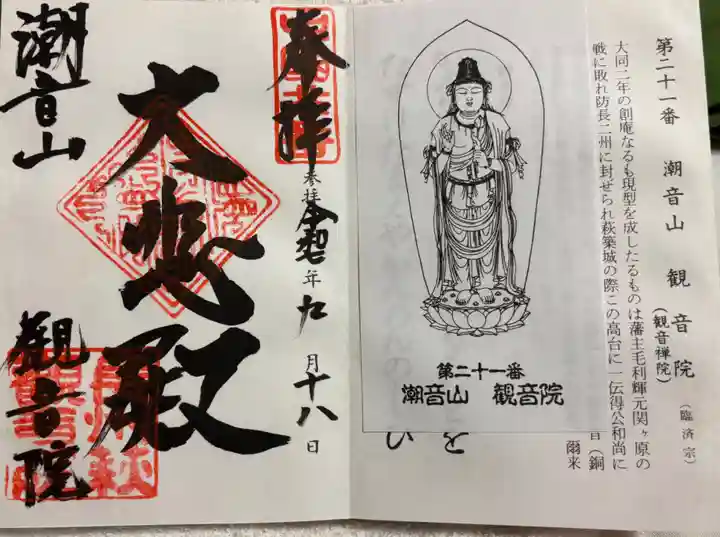 第二十一番　潮音山　観音院（臨済宗）
（観音禅院）
大同二年の創庵なるも現型を成したるものは藩主毛利輝元関ヶ原の
戦に敗れ防長二州に封ぜられ萩築城の際この高台に一伝得公和尚に
音（銅
爾来
第二十一番
潮音山　観音院
を
ひ
奉拝
参拝 令和七年九月十八日
大悲殿
潮音山
観音院